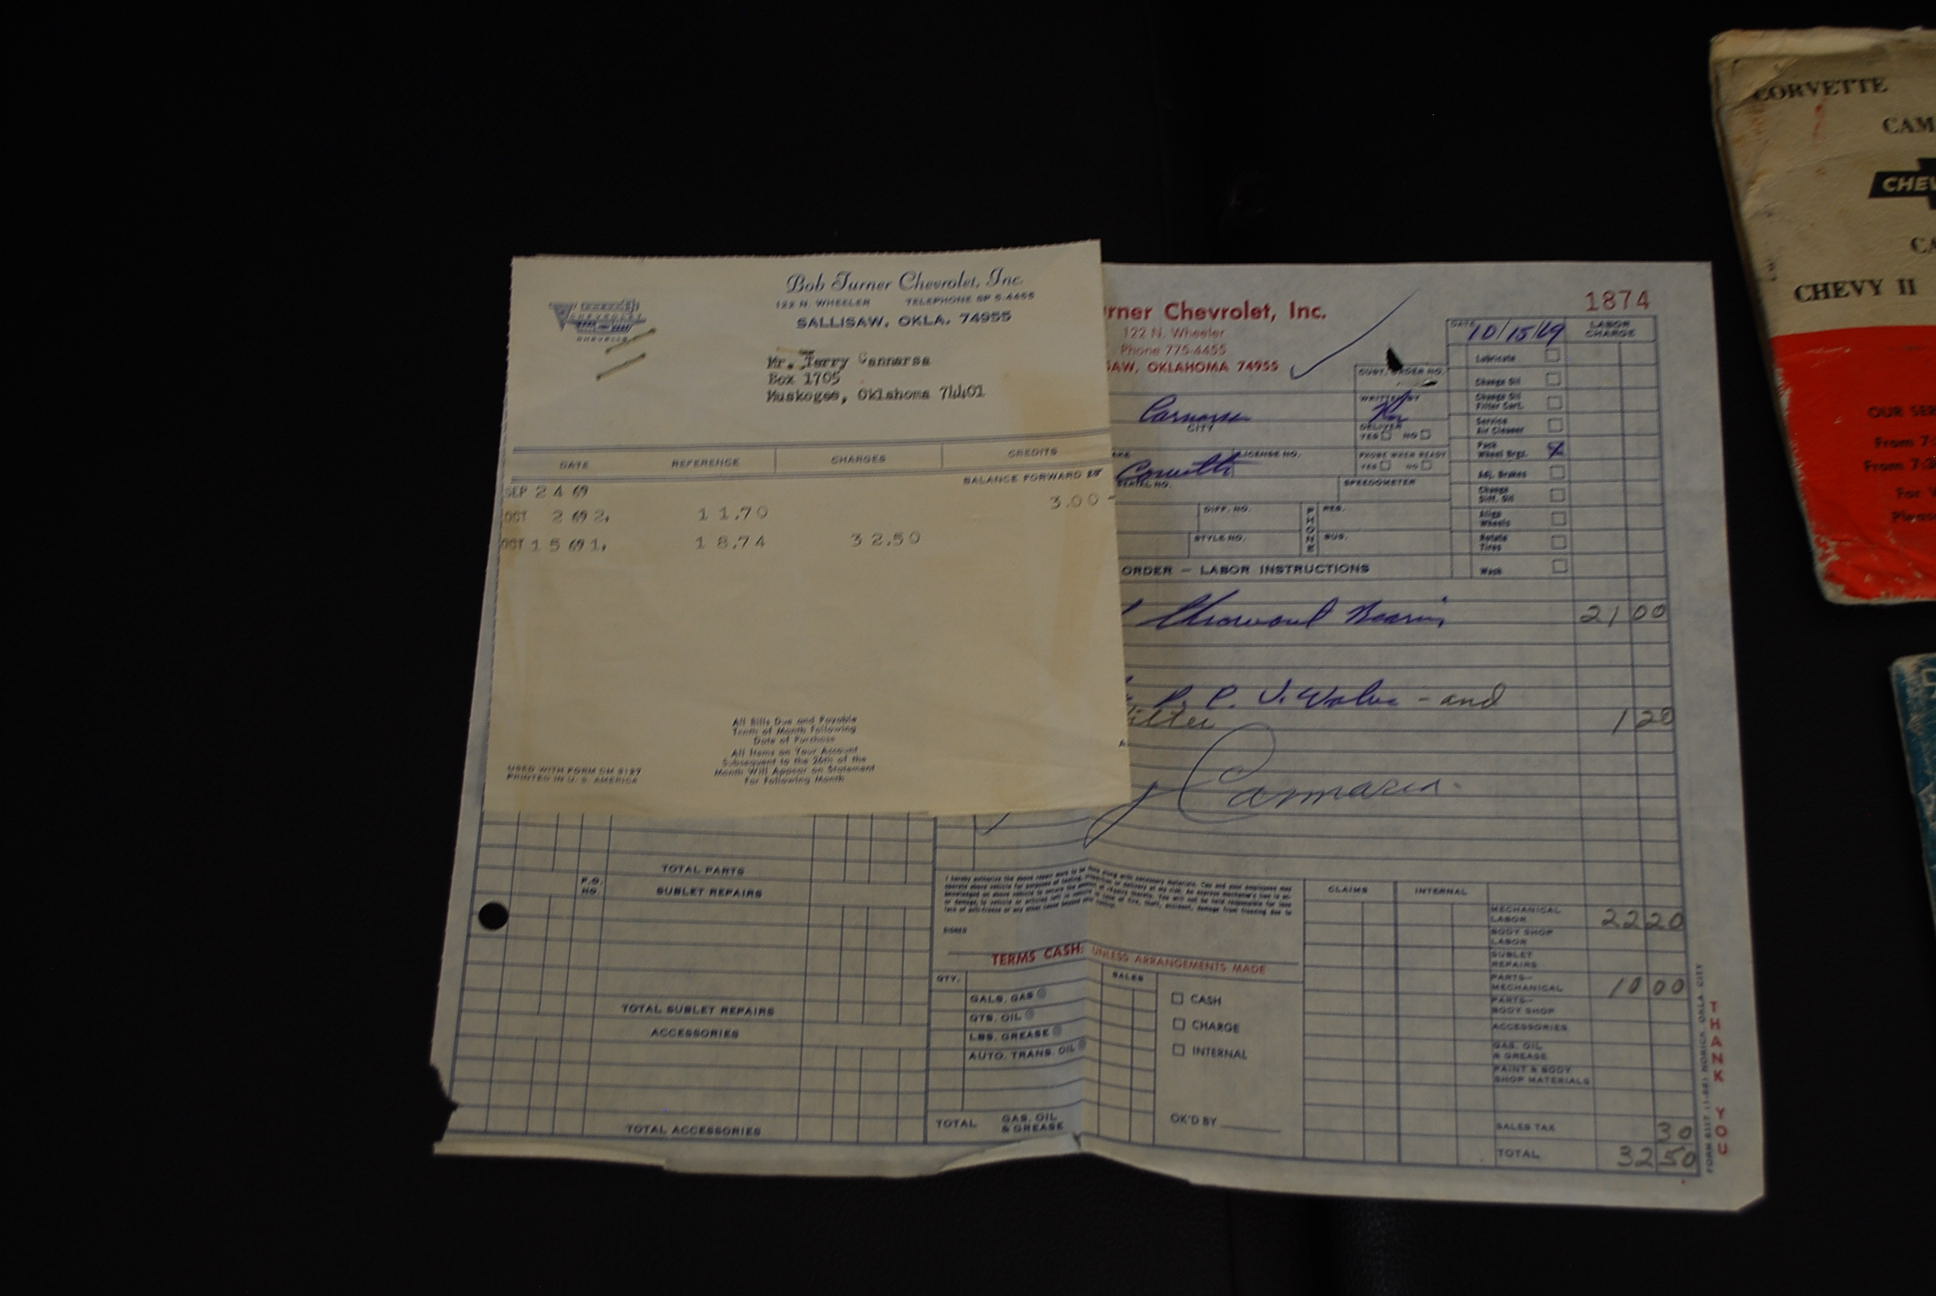 Bob Turner Chevrolet, Inc.
122 N. WHEELER TELEPHONE SP 5-4455
SALLISAW, OKLA. 74955
CHEVROLET
Mr. Terry Cannarsa
Box 1705
Muskogee, Oklahoma 74401
DATE REFERENCE CHARGES CREDITS
BALANCE FORWARD
SEP 24 69
3.00 -
OCT 2 69 2, 11.70
OCT 15 69 1, 18.74 32.50
All Bills Due and Payable
Tenth of Month Following
Date of Purchase
All Items on Your Account
Subsequent to the 26th of the
Month Will Appear on Statement
For Following Month
USED WITH FORM GM 5127
PRINTED IN U. S. AMERICA
rner Chevrolet, Inc.
122 N. Wheeler
Phone 775-4455
SAW, OKLAHOMA 74955
1874
DATE 10/15/69
LABOR
CHARGE
Lubricate
Change Oil
Change Oil
Filter Cart.
Service
Air Cleaner
Pack
Wheel Brgs. X
Adj. Brakes
Change
Diff. Oil
Align
Wheels
Rotate
Tires
Wash
CUST. ORDER NO.
WRITTEN BY
DELIVER
YES NO
PHONE WHEN READY
YES NO
CITY
Corvette
LICENSE NO.
SERIAL NO. SPEEDOMETER
DIFF. NO. PHONE RES.
STYLE NO. BUS.
ORDER - LABOR INSTRUCTIONS
Throwout Bearing 21 00
P. C. V. Valve - and
filter 1 20
Cannarsa
TOTAL PARTS
P.O.
NO. SUBLET REPAIRS
TOTAL SUBLET REPAIRS
ACCESSORIES
TOTAL ACCESSORIES
SIGNED
TERMS CASH: UNLESS ARRANGEMENTS MADE
QTY. SALES
GALS. GAS @
QTS. OIL @
LBS. GREASE @
AUTO. TRANS. OIL @
TOTAL GAS, OIL
& GREASE
CASH
CHARGE
INTERNAL
OK'D BY
CLAIMS INTERNAL
MECHANICAL
LABOR 22 20
BODY SHOP
LABOR
SUBLET
REPAIRS
PARTS-
MECHANICAL 10 00
PARTS-
BODY SHOP
ACCESSORIES
GAS, OIL
& GREASE
PAINT & BODY
SHOP MATERIALS
SALES TAX 30
TOTAL 32 50
THANK YOU
CORVETTE
CAM
CHEV
CA
CHEVY II
OUR SER
From 7:
From 7:3
For
Please